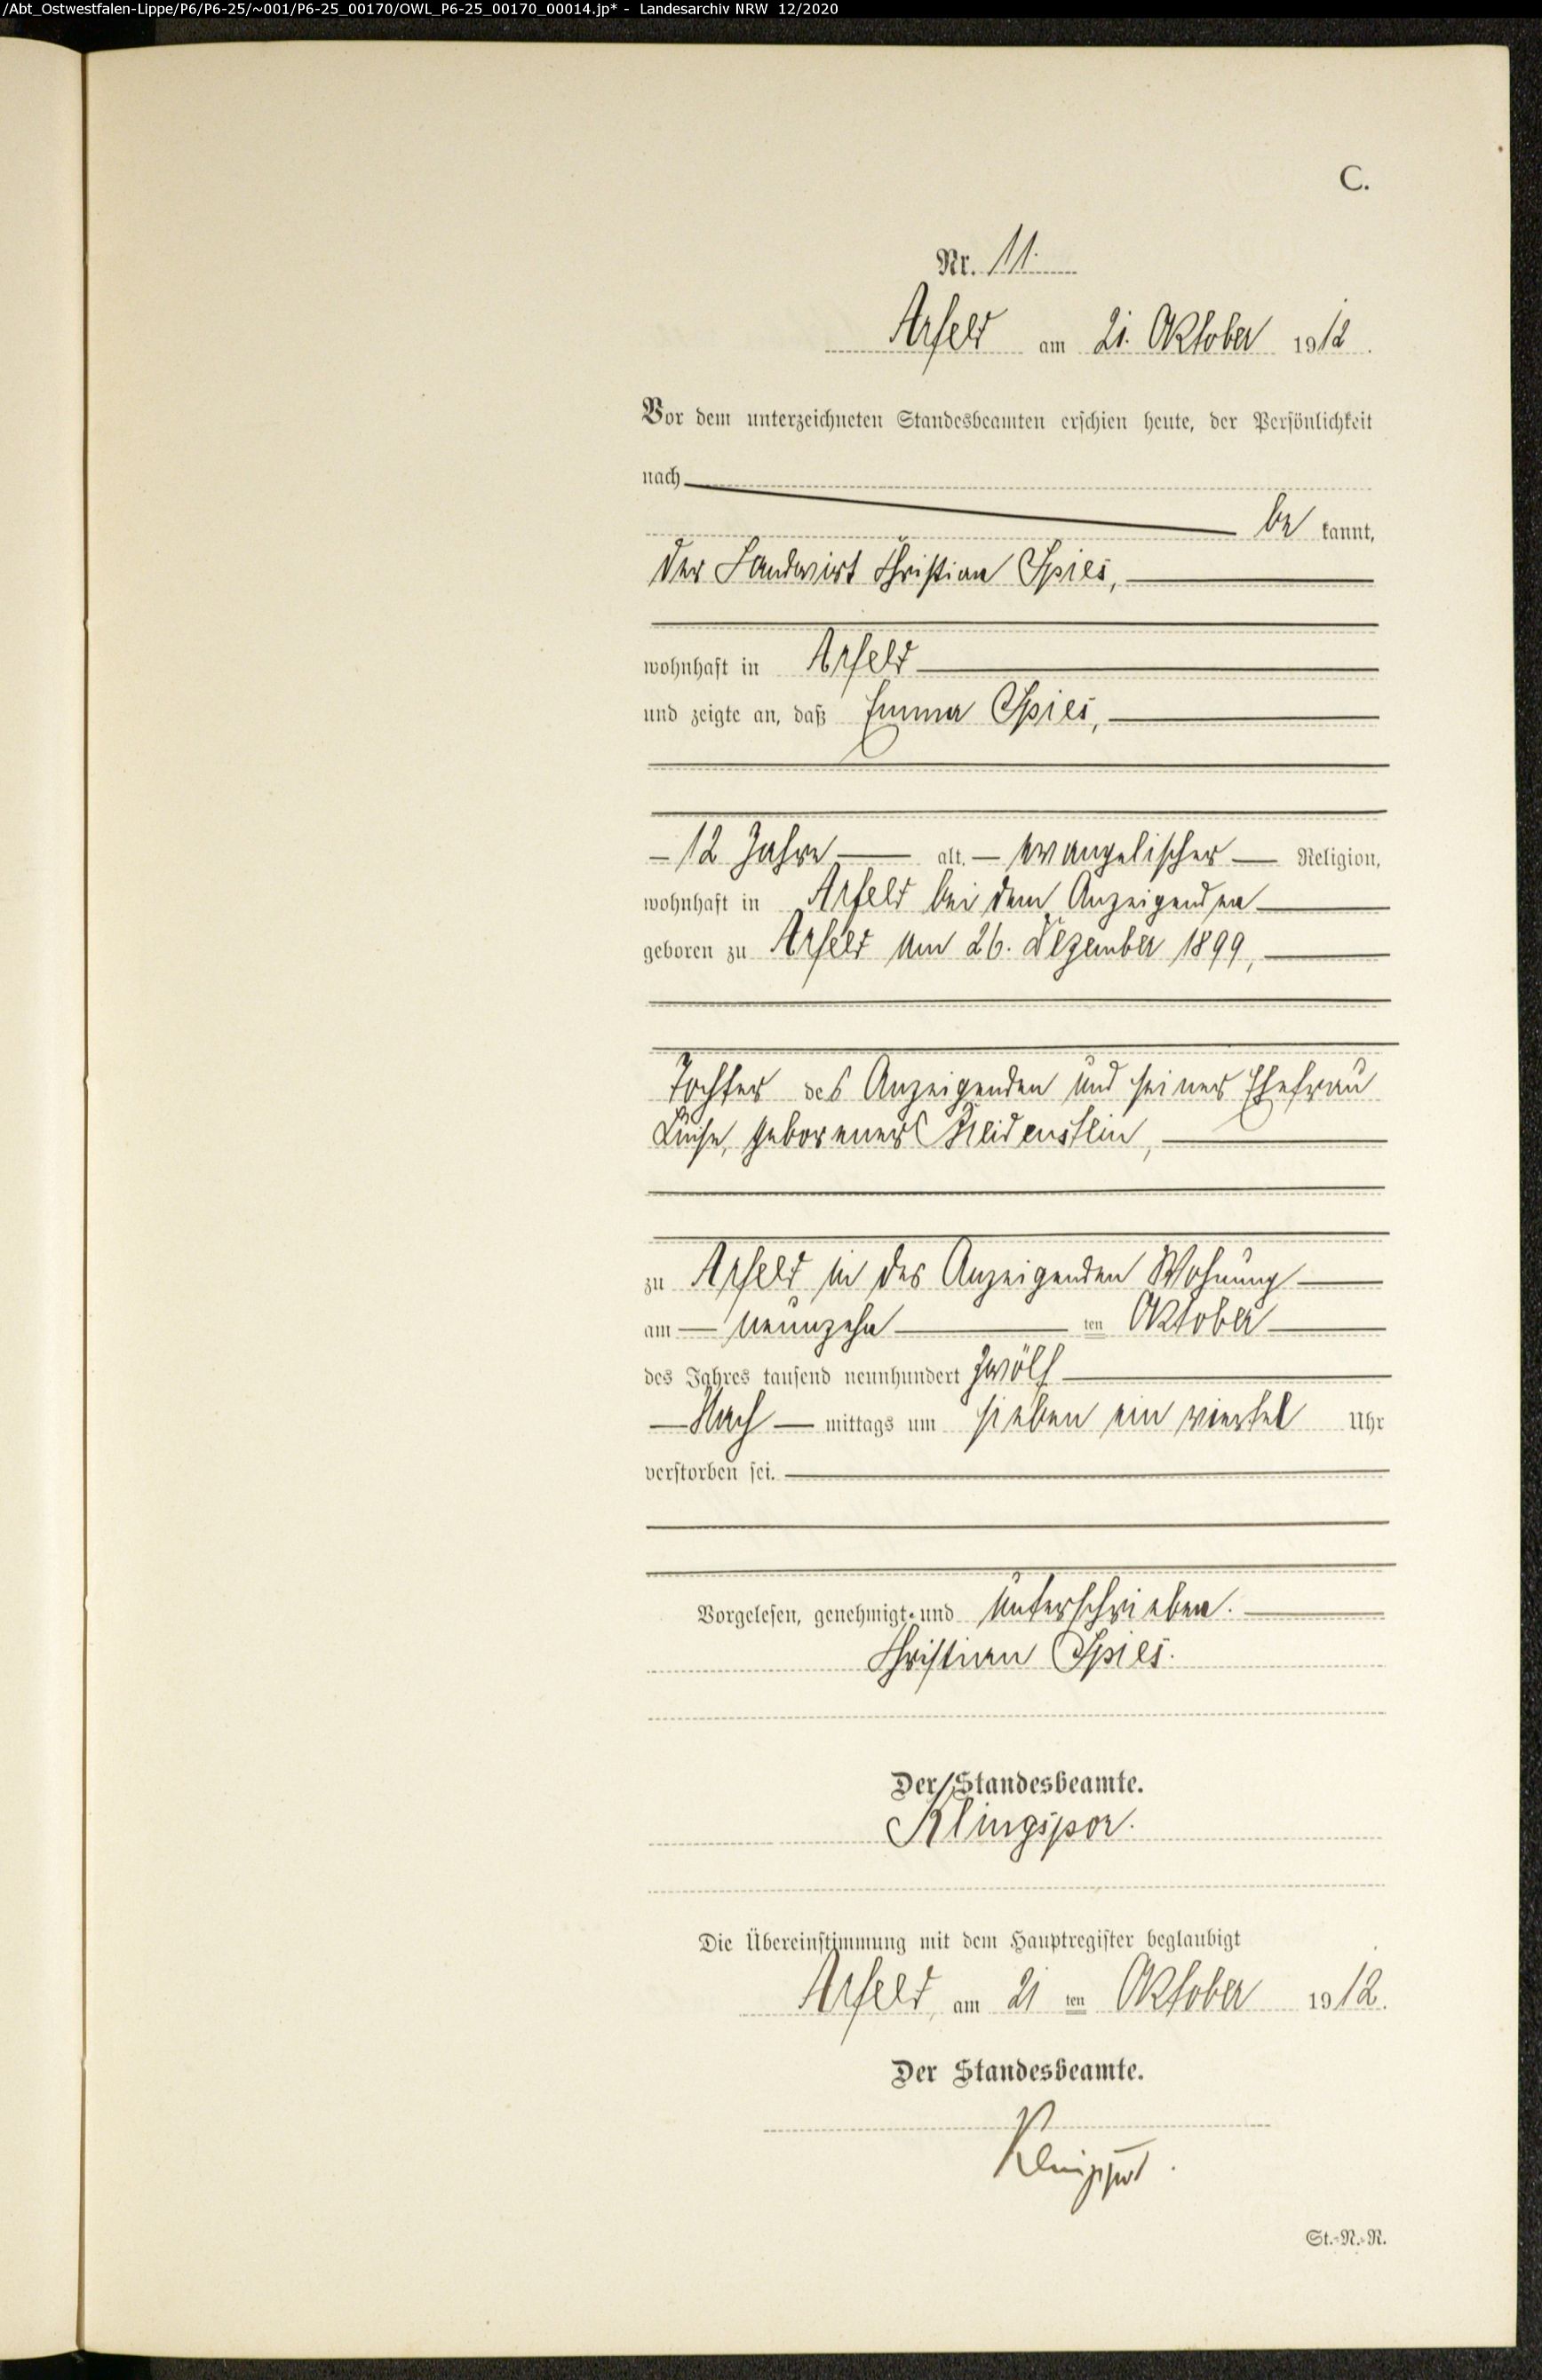 /Abt_Ostwestfalen-Lippe/P6/P6-25/~001/P6-25_00170/OWL_P6-25_00170_00014.jp* - Landesarchiv NRW 12/2020
C.
Nr. 11.
Arfeld am 21. Oktober 1912.
Vor dem unterzeichneten Standesbeamten erschien heute, der Persönlichkeit
nach
be kannt,
der Landwirt Christian Spies,
wohnhaft in Arfeld
und zeigte an, daß Emma Spies,
12 Jahre alt, evangelischer Religion,
wohnhaft in Arfeld bei dem Anzeigenden
geboren zu Arfeld am 26. Dezember 1899,
Tochter des Anzeigenden und seiner Ehefrau
Luise, geborener
zu Arfeld in des Anzeigenden Wohnung
am neunzehn ten Oktober
des Jahres tausend neunhundert zwölf
Nach mittags um sieben ein viertel Uhr
verstorben sei.
Vorgelesen, genehmigt und unterschrieben.
Christian Spies.
Der Standesbeamte.
Klingspor.
Die Übereinstimmung mit dem Hauptregister beglaubigt
Arfeld, am 21 ten Oktober 1912.
Der Standesbeamte.
Klingspor.
St.-N.-R.